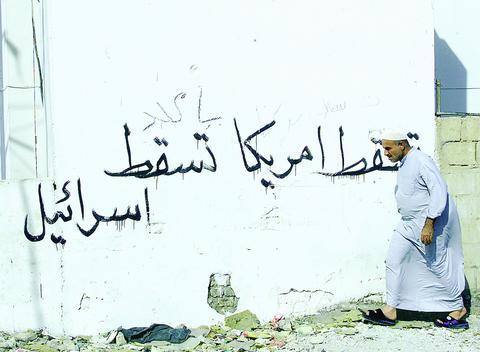 تسقط امريكا تسقط
اسرائيل